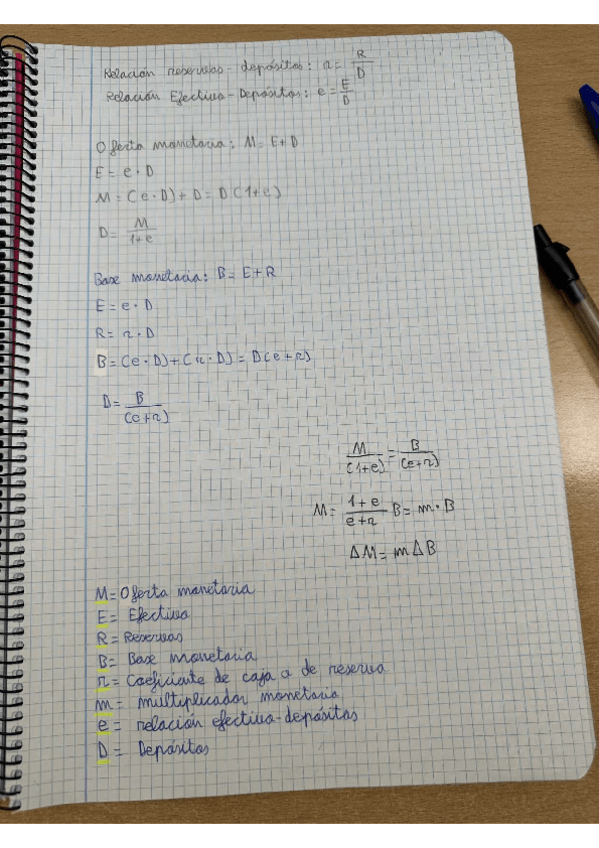 Relación reservas-depósitos: r = R/D
Relación Efectivo-Depósitos: e = E/D
Oferta monetaria: M = E+D
E = e · D
M = (e · D) + D = D (1+e)
D = M/1+e
Base monetaria: B = E+R
E = e · D
R = r · D
B = (e · D) + (r · D) = D(e+r)
D = B/(e+r)
M/(1+e) = B/(e+r)
M = 1+e/e+r B = m · B
ΔM = mΔB
M = Oferta monetaria
E = Efectivo
R = Reservas
B = Base monetaria
r = Coeficiente de caja o de reserva
m = multiplicador monetario
e = relación efectivo-depósitos
D = Depósitos